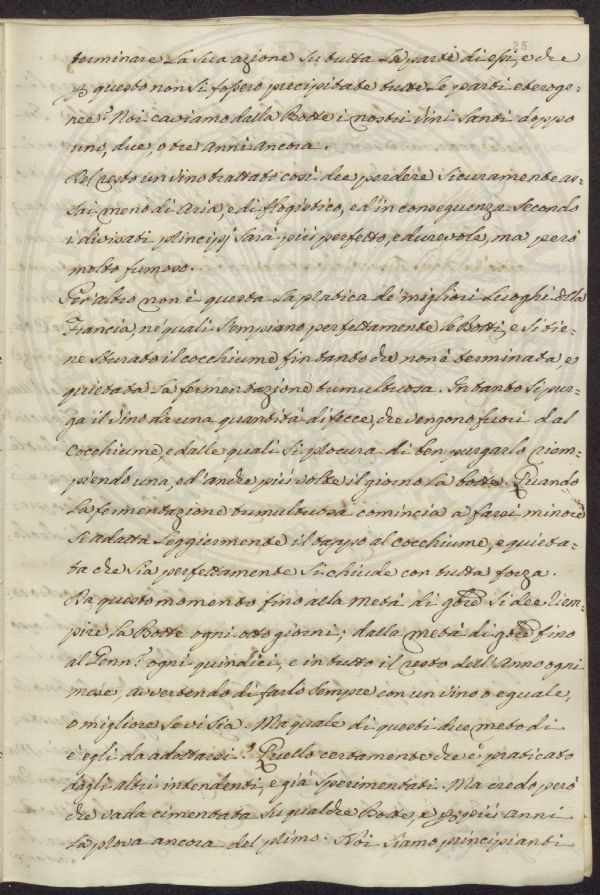 25
terminare la sua azione su tutta le parti di essi, e che
p questo non si fossero precipitate tutte le parti eteroge-
nee? Noi caviamo dalla Botte i nostri Vini Santi doppo
uno, due, o tre anni ancora.
Del resto un vino trattato così dee perdere sicuramente as-
sai meno di Aria, e di flogistico, ed in conseguenza secondo
i divisati principj sarà più perfetto, e durevole, ma però
molto fumoso.
Per altro non è questa la pratica de' migliori Luoghi della
Francia, ne' quali s'empiano perfettamente le Botti, e si tie-
ne sturato il cocchiume fin tanto che non è terminata, e
quietata la fermentazione tumultuosa. In tanto si pur-
ga il vino da una quantità di fecce, che vengono fuori dal
Cocchiume, e dalle quali si procura di ben purgarlo riem-
piendo una, ed anche più volte il giorno la botte. Quando
la fermentazione tumultuosa comincia a farsi minore
si adatta leggiermente il tappo al cocchiume, e quieta-
ta che sia perfettamente si chiude con tutta forza.
Da questo momento fino alla metà di 9bre si dee riem-
pire la Botte ogni otto giorni; dalla metà di 9bre fino
al Genn.o ogni quindici, e in tutto il resto dell'Anno ogni
mese, avvertendo di farlo sempre con un vino o eguale,
o migliore se vi sia. Ma quale di questi due metodi
è egli da adottarsi? Quello certamente che è praticato
dagli altri intendenti, e già sperimentati. Ma credo però
che vada cimentata su qualche Botte, e p più anni
la prova ancora del primo. Noi siamo principianti